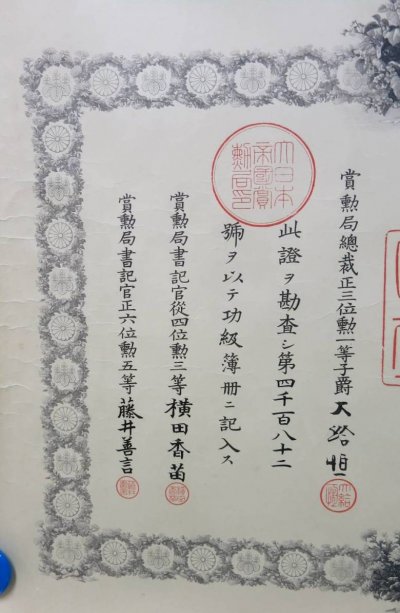 賞勲局總裁正三位勲一等子爵大給恒
此證ヲ勘査シ第四千百八十二
號ヲ以テ功級簿册ニ記入ス
賞勲局書記官從四位勲三等横田香苗
賞勲局書記官正六位勲五等藤井善言
大日本
帝國賞
勲局印